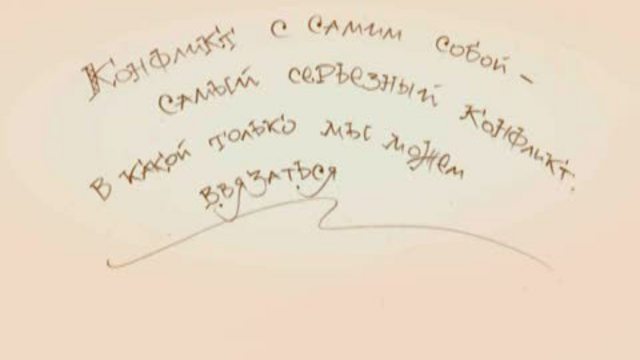 Конфликт с самим собой –
самый серьезный конфликт.
в какой только мы можем
ввязаться